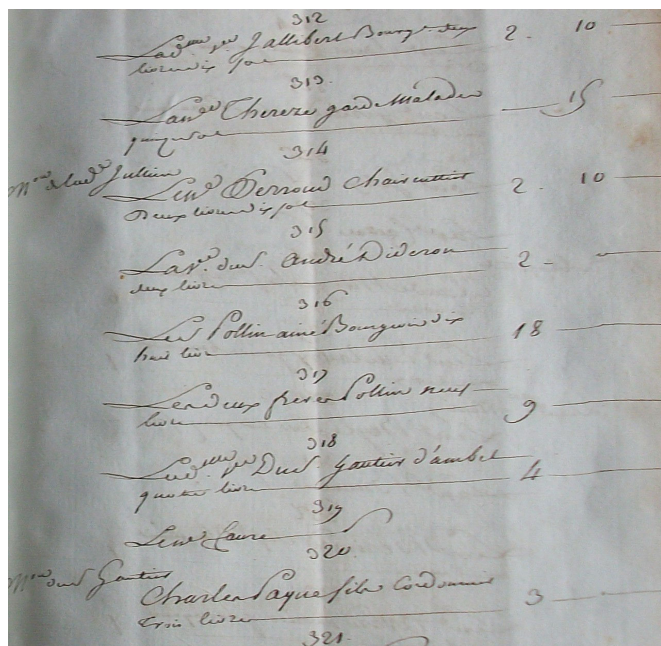 312
Lad.elle Jallibert Bourg.se deux 2. 10
livres dix sols
313
Thereze garde Malades 15
quinze sols
314
M.on de lad.e Jullien
Perroud Chaircuttier 2. 10
Deux livres dix sols
315
La v.e du s. André Dideron 2 -
deux livres
316
Le s. Pollin ainé Bourgeois dix 18
huit livres
317
Les deux freres Pollin neuf
livres 9
318
du s. Gautier d'ambel
quatre livres 4
319
Faure
320
M.on du s. Gautier
Charles Paque fils Cordonnier
trois livres 3
321